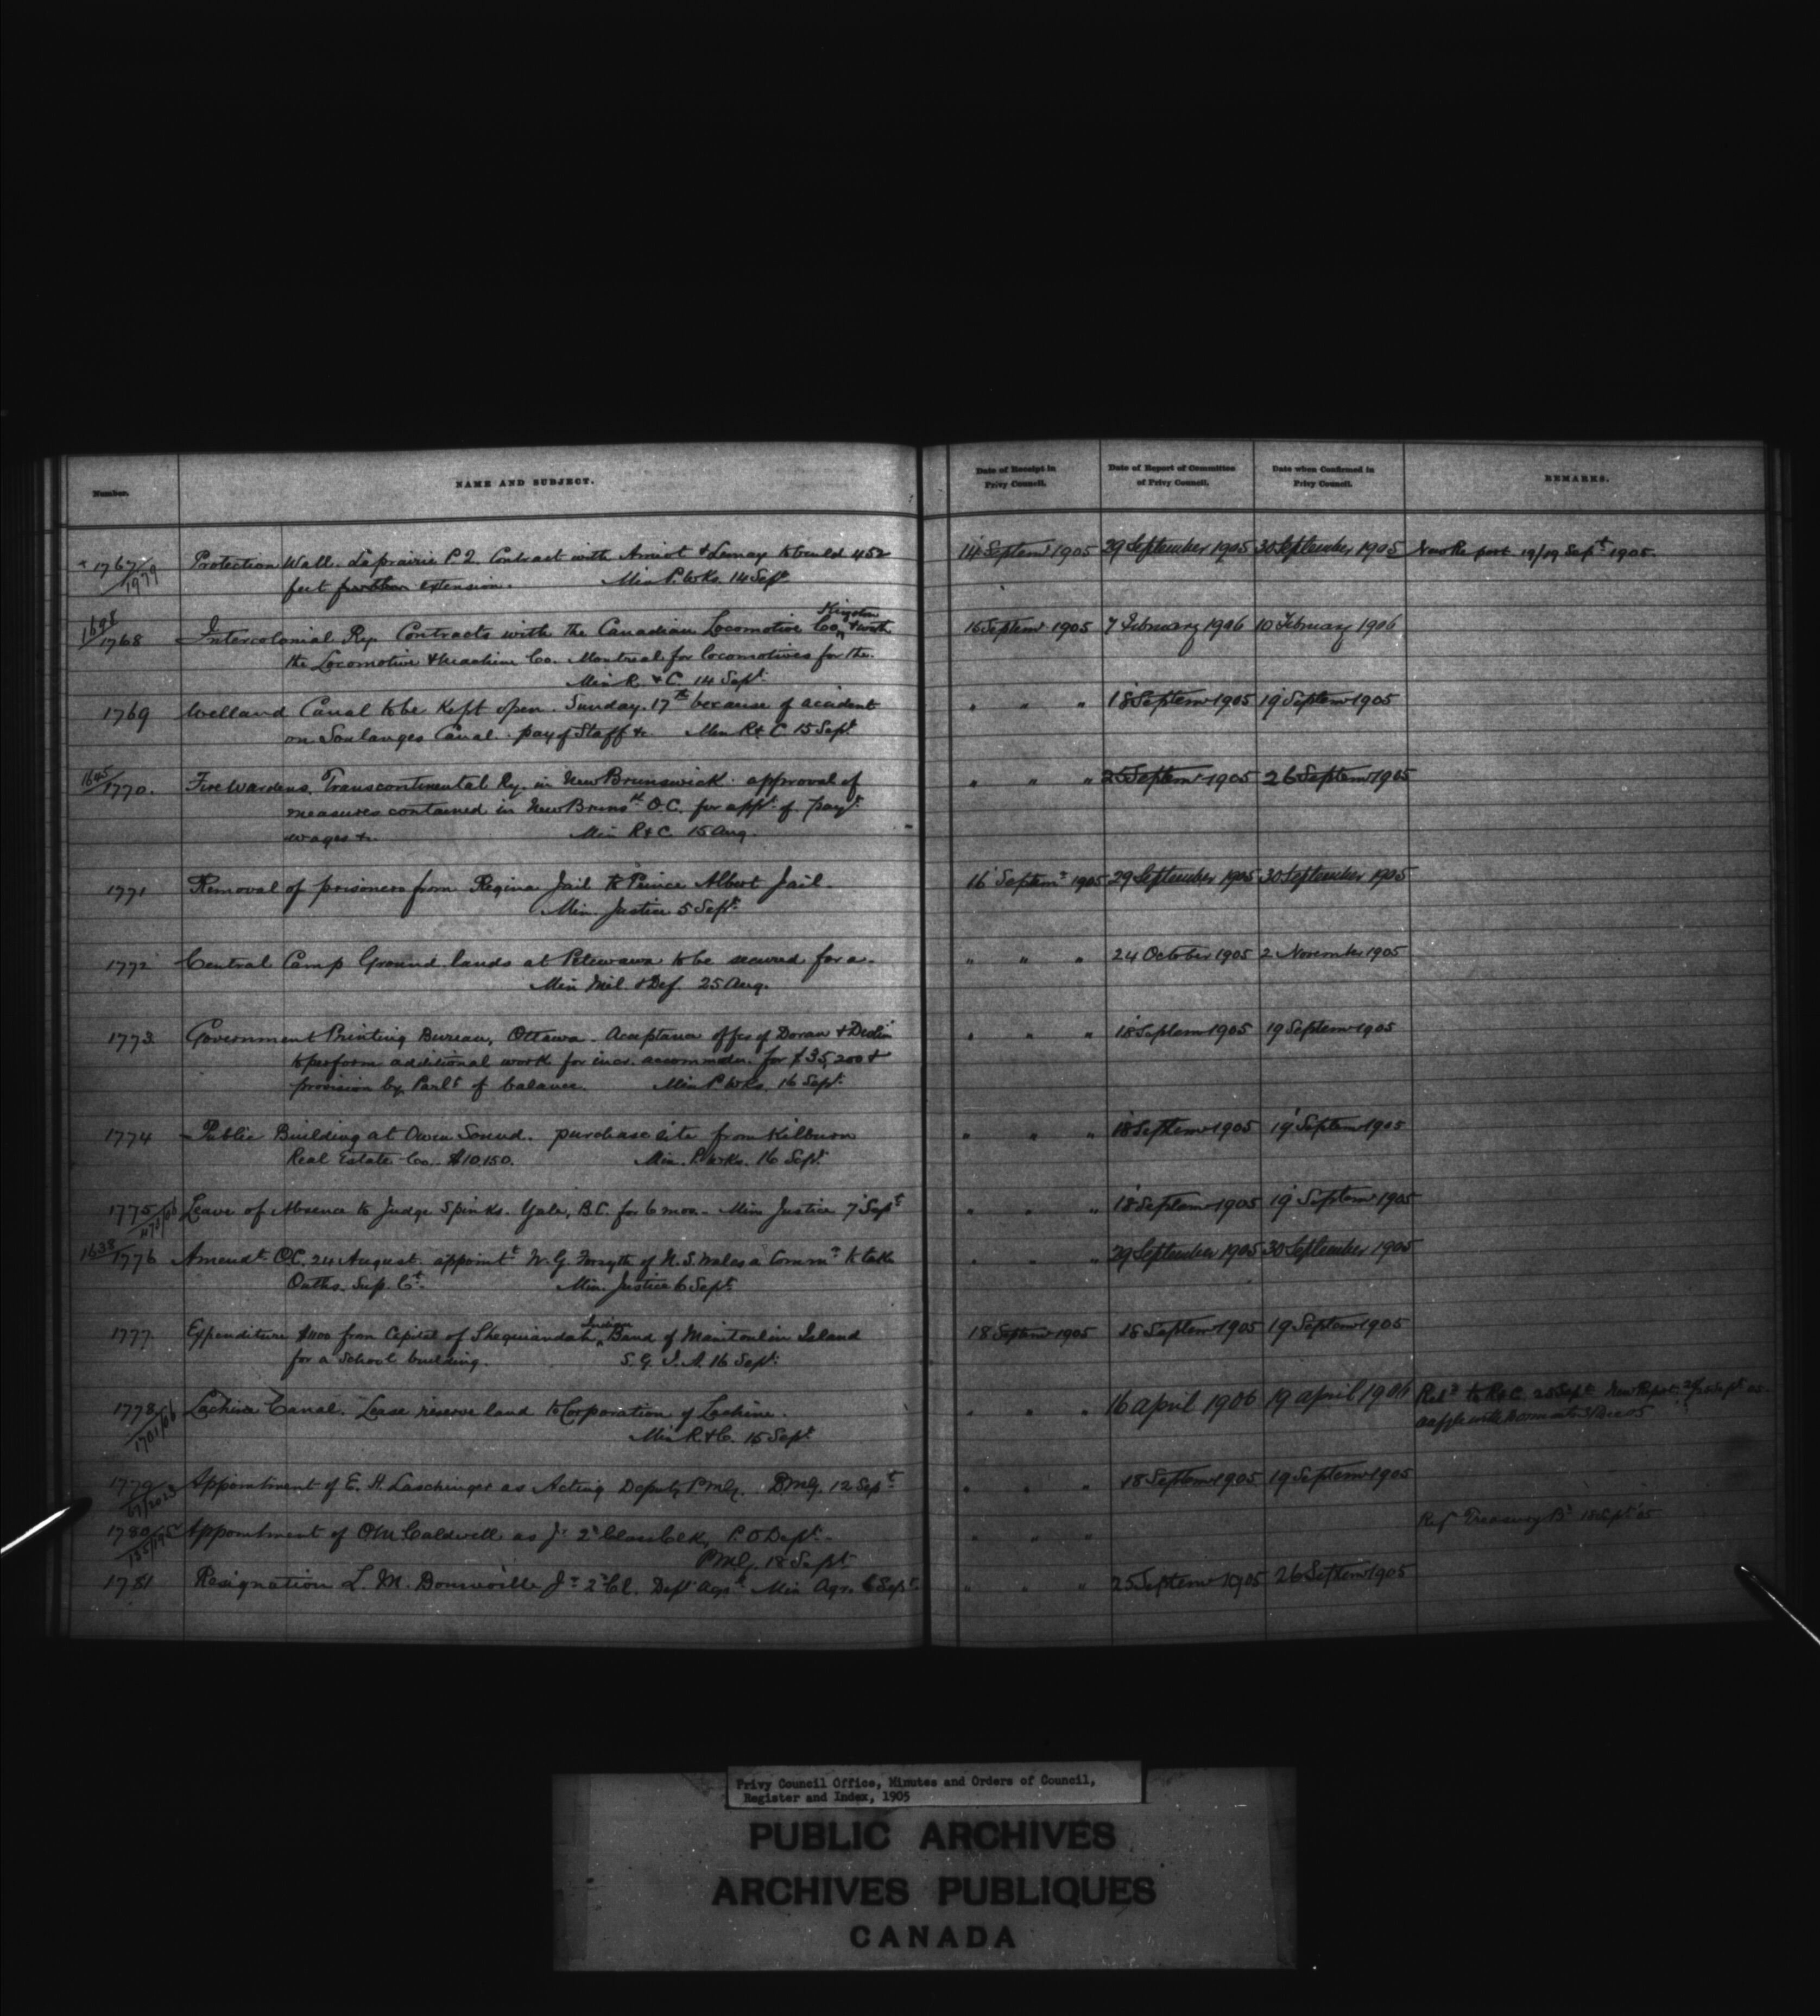 Number.
NAME AND SUBJECT.
Date of Receipt in Privy Council.
Date of Report of Committee of Privy Council.
Date when Confirmed in Privy Council.
REMARKS.
1767/1979 Protection Wall. Laprairie P.Q. Contract with Amiot & Lemay to build 452 14 Septemr 1905 29 September 1905 30 September 1905 New Report 19/19 Sept 1905.
feet further extension. Min P. Wks. 14 Sept
1698/1768 Intercolonial Ry. Contracts with the Canadian Locomotive Co. Kingston & with 16 Septemr 1905 7 February 1906 10 February 1906
the Locomotive & Machine Co. Montreal for locomotives for the.
Min R. & C. 14 Sept.
1769 Welland Canal to be kept open. Sunday. 17th because of accident " " " 18 Septemr 1905 19 Septemr 1905
on Soulanges Canal. pay of Staff &c. Min R & C 15 Sept
1645/1770. Fire Wardens. Transcontinental Ry. in New Brunswick. approval of " " " 25 Septemr 1905 26 Septemr 1905
measures contained in New Brunsk O.C. for appt. of payt.
wages &c. Min R & C 15 Aug.
1771 Removal of prisoners from Regina Jail to Prince Albert Jail. 16 Septemr 1905 29 September 1905 30 September 1905
Min. Justice 5 Sept.
1772 Central Camp Ground lands at Petewawa to be secured for a. " " " 24 October 1905 2 November 1905
Min Mil. & Def. 25 Aug.
1773 Government Printing Bureau, Ottawa. Acceptance offer of Doran & Devlin " " " 18 Septemr 1905 19 Septemr 1905
to perform additional work for incr. accommodn. for $35,200 &
provision by Parlt of balance. Min P. Wks. 16 Sept.
1774 Public Building at Owen Sound. purchase site from Kilbourn " " " 18 Septemr 1905 19 Septemr 1905
Real Estate Co. $10,150. Min. P. Wks. 16 Sept.
1775 Leave of Absence to Judge Spinks. Yale, B.C. for 6 mos. Min Justice 7 Sept " " " 18 Septemr 1905 19 Septemr 1905
1638/1776 Amendt O.C. 24 August. appoint W. G. Forsyth of N. S. Wales a Commr to take " " " 29 September 1905 30 September 1905
Oaths. Sup. Ct. Min. Justice 6 Sept
1777. Expenditure $1100 from Capital of Sheguiandah Indian Band of Manitoulin Island 18 Septemr 1905 18 Septemr 1905 19 Septemr 1905
for a School building. S. G. I. A. 16 Sept.
1778 Lachine Canal. Lease reserve land to Corporation of Lachine. " " " 16 April 1906 19 April 1906 Refd to R & C. 25 Sept. New Report
Min R. & C. 15 Sept.
1779 Appointment of E. H. Laschinger as Acting Deputy P.M.G. P.M.G. 12 Sept " " " 18 Septemr 1905 19 Septemr 1905
1780 Appointment of O M Caldwell as Jr 2d Class Clk, P. O Dept. " " " Ref Treasury Bd 18 Sept 05
P.M.G. 18 Sept
1781 Resignation L. M. Jr 2d Cl. Dept Agr Min Agr. 6 Sept " " " 25 Septemr 1905 26 Septemr 1905
Privy Council Office, Minutes and Orders of Council,
Register and Index, 1905
PUBLIC ARCHIVES
ARCHIVES PUBLIQUES
CANADA